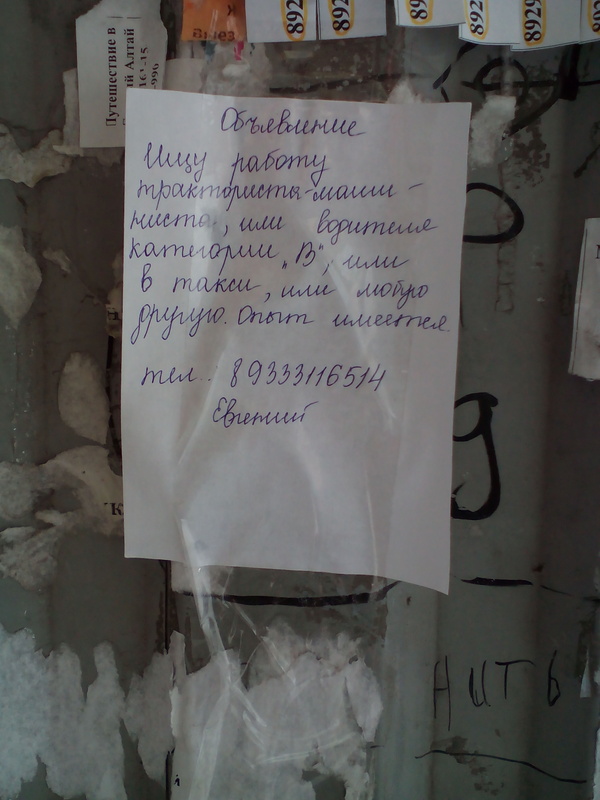 8929
Путешествие в
Объявление
Ищу работу
тракториста-маши-
ниста, или водителя
категории „В", или
в такси, или любую
другую. Опыт имеется
тел.: 89333116514
Евгений